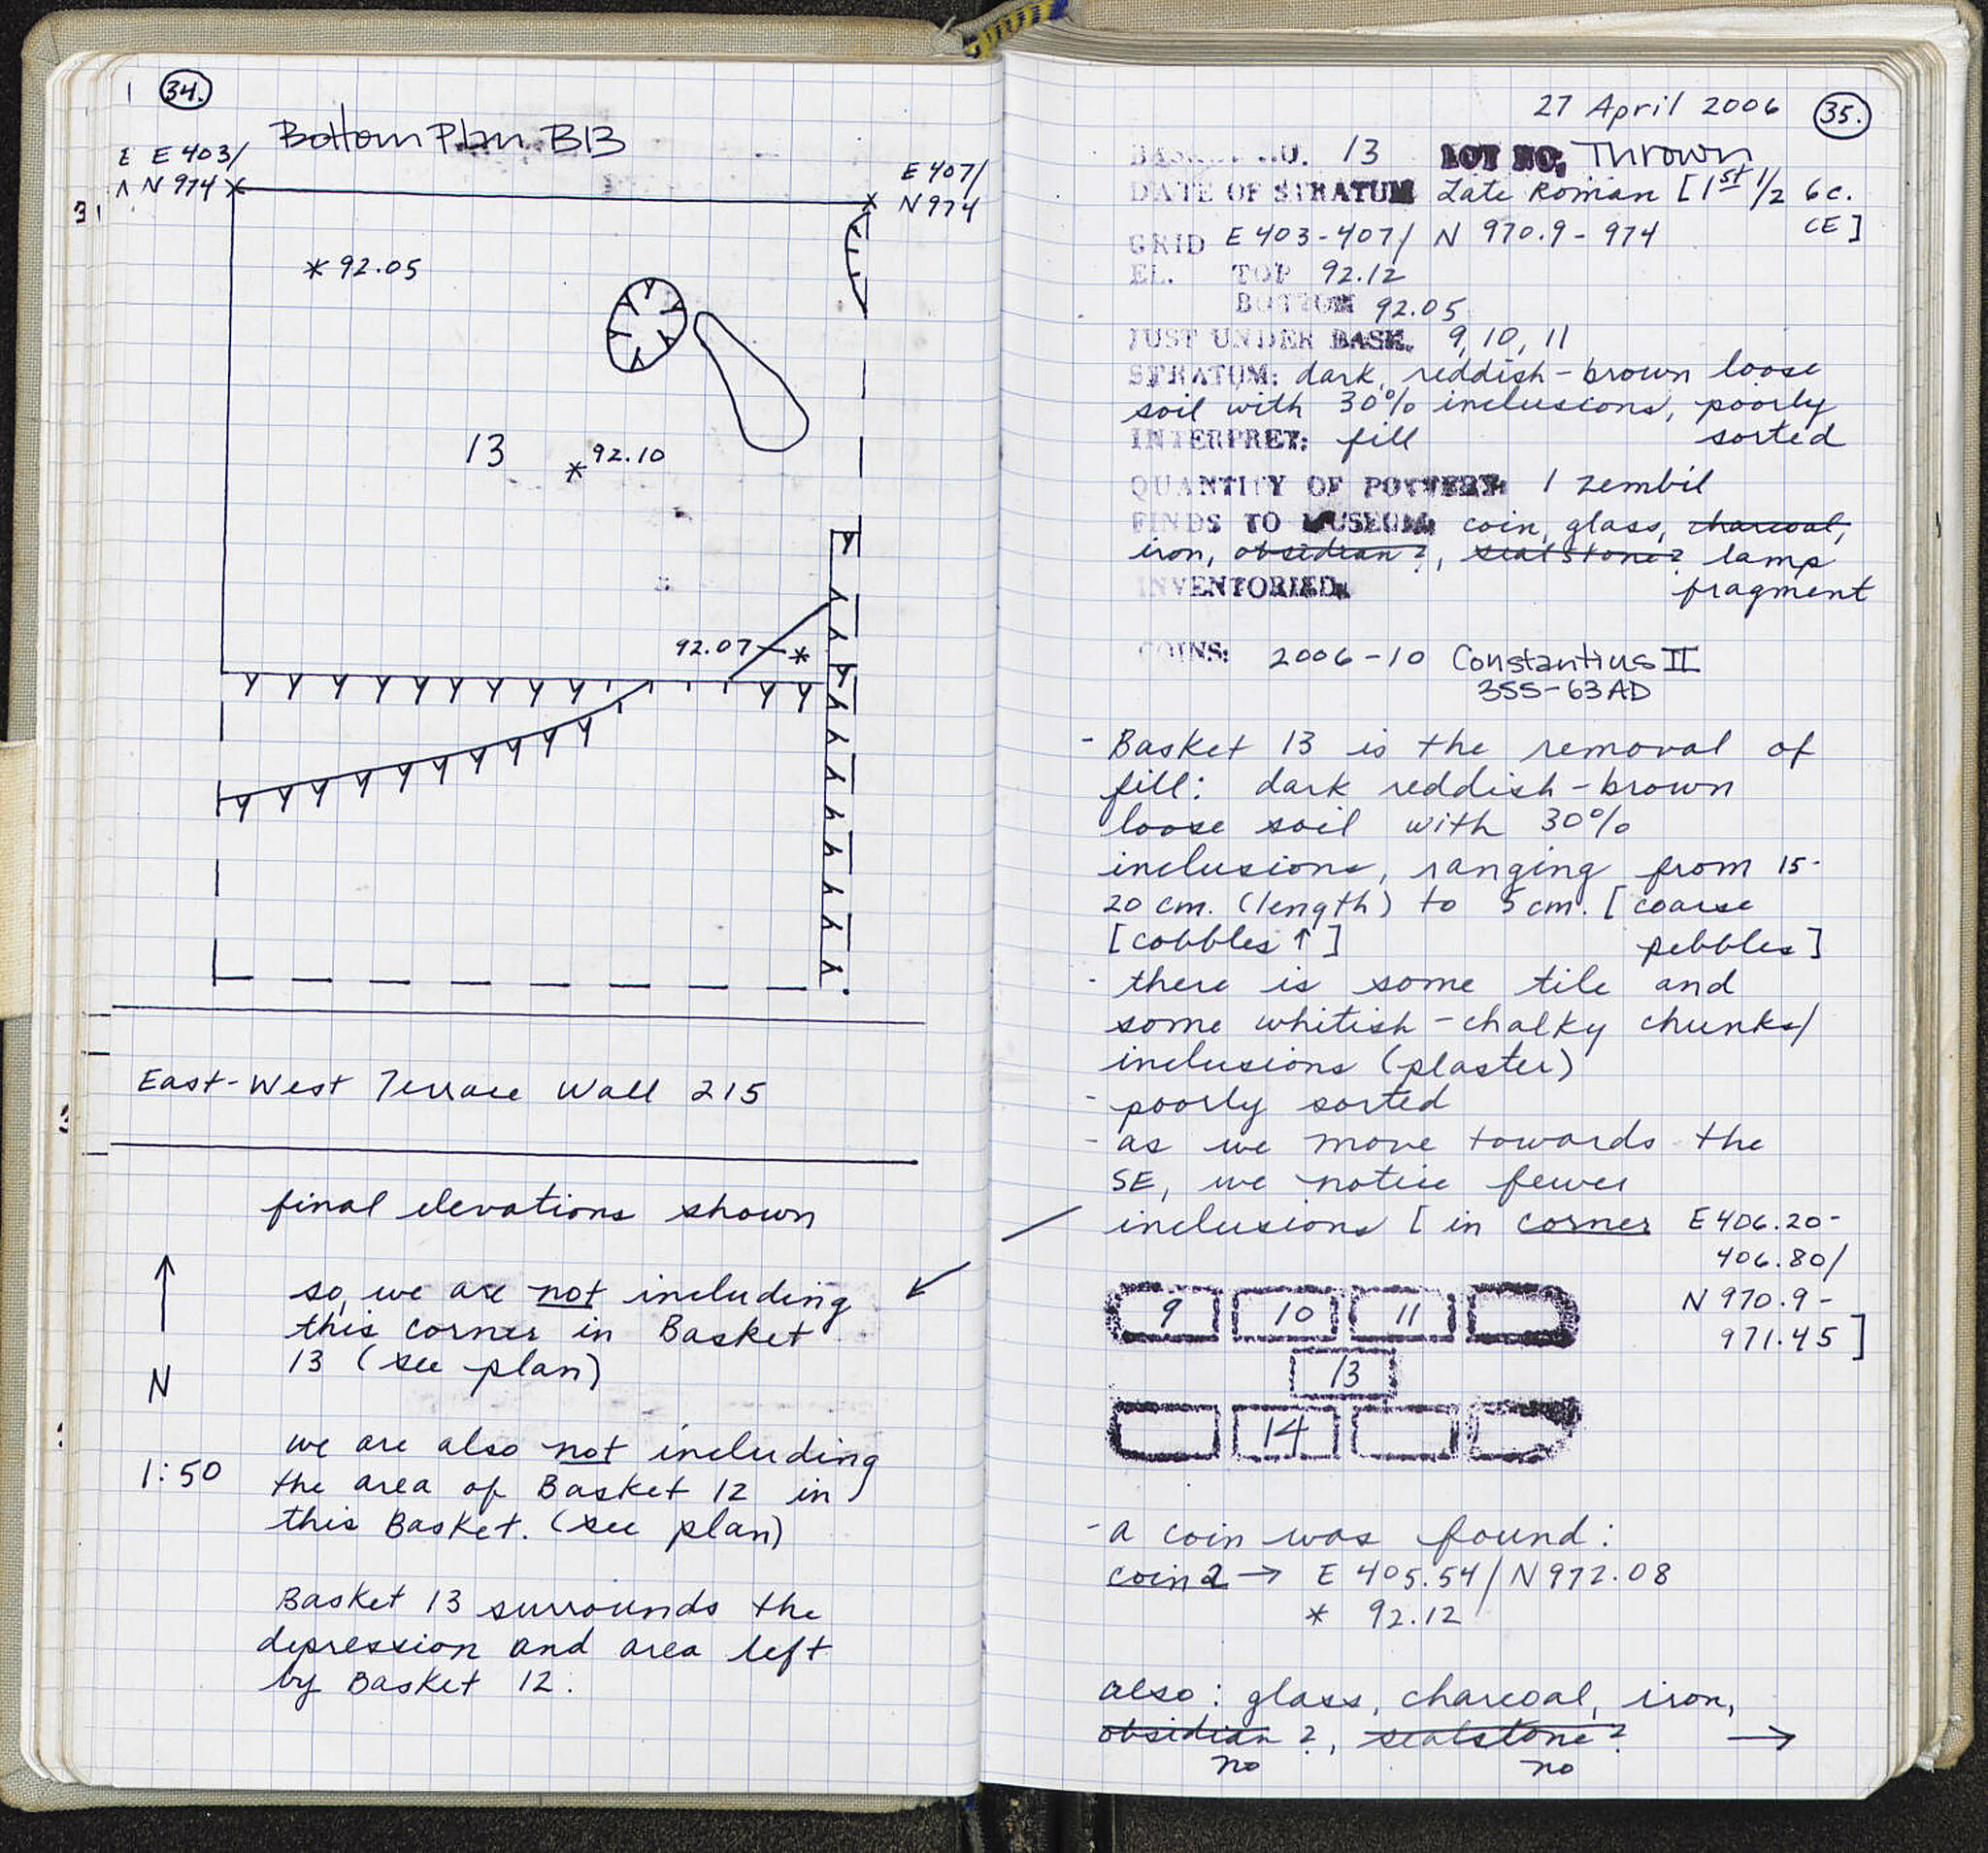 34.
Bottom Plan B13
E 403/
N 974
E 407/
N 974
* 92.05
13
* 92.10
92.07 *
East-West Terrace Wall 215
final elevations shown
so, we are not including
this corner in Basket
13 (see plan)
N
we are also not including
1:50
the area of Basket 12 in
this Basket. (see plan)
Basket 13 surrounds the
depression and area left
by Basket 12.
27 April 2006 35.
13 LOT NO. Thrown
DATE OF STRATUM Late Roman [1st 1/2 6c.
CE]
GRID E 403-407/ N 970.9-974
EL. TOP 92.12
BOTTOM 92.05
JUST UNDER BASK. 9, 10, 11
STRATUM: dark, reddish-brown loose
soil with 30% inclusions, poorly
sorted
INTERPRET: fill
QUANTITY OF POTTERY: 1 zembil
FINDS TO MUSEUM: coin, glass, charcoal,
iron, obsidian?, sealstone? lamp
fragment
INVENTORIED:
COINS: 2006-10 Constantius II
355-63AD
- Basket 13 is the removal of
fill: dark reddish-brown
loose soil with 30%
inclusions, ranging from 15-
20 cm. (length) to 5 cm. [coarse
[cobbles ↑] pebbles]
- there is some tile and
some whitish-chalky chunks/
inclusions (plaster)
- poorly sorted
- as we move towards the
SE, we notice fewer
inclusions [in corner E 406.20-
406.80/
N 970.9-
971.45]
9 10 11
13
14
- a coin was found:
coin 2 → E 405.54/N 972.08
* 92.12
also: glass, charcoal, iron,
obsidian?, sealstone? →
no no